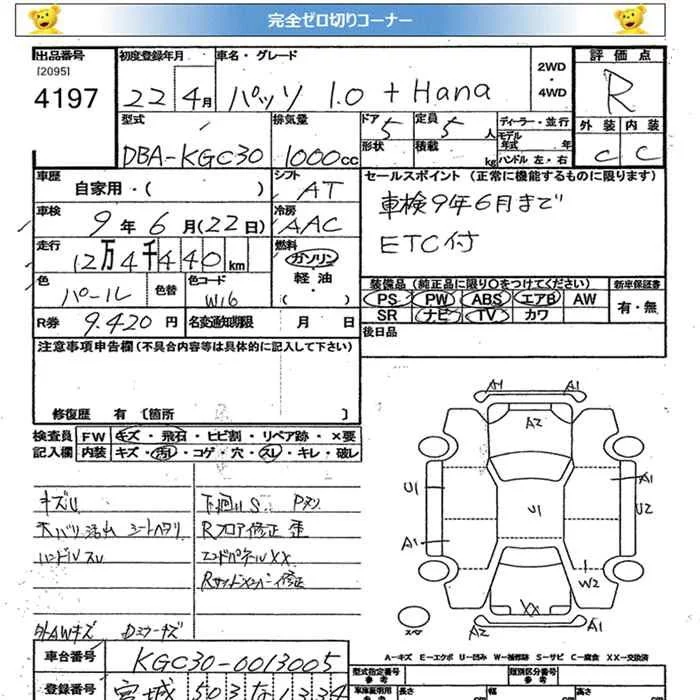 完全ゼロ切りコーナー
出品番号 初度登録年月 車名・グレード 評価点
[2095]
4197 22 4月 パッソ 1.0 + Hana 2WD ・ 4WD R
型式 排気量 ドア 5 定員 5人 ディーラー・並行 外装 内装
DBA-KGC30 1000cc 形状 積載 kg モデル年式 年 C C
ハンドル 左・右
車歴 自家用・( ) シフト AT セールスポイント (正常に機能するものに限ります)
車検 9年 6月(22日) 冷房 AAC 車検9年6月まで
走行 12万4千440km 燃料 ガソリン・軽油・( ) ETC付
色 パール 色替 色コード W16
装備品 (純正品に限り○をつけてください) 新車保証書
PS PW ABS エアB AW 有・無
SR ナビ TV カワ
R券 9.420円 名変通知期限 月 日 後日品
注意事項申告欄 (不具合内容等は具体的に記入して下さい)
修復歴 有 〔箇所 〕
検査員 FW キズ・飛石・ヒビ割・リペア跡・×要
記入欄 内装 キズ・汚れ・コゲ・穴・スレ・キレ・破レ
キズU 下廻りS
Rフロア修正 歪
ハンドルスレ エンドパネルXX
Rサイドメンバー修正
外AWキズ Dミラーキズ
A1 A1
A2
U1 U1 A1 U2
A1 W2
XX
スペア A2 A1
A-キズ E-エクボ U-凹み W-補修跡 S-サビ C-腐食 XX-交換済
車台番号 KGC30-0013005
型式指定番号 類別区分番号
参考 参考
登録番号 宮城 503 な 1334
長さ 幅 高さ